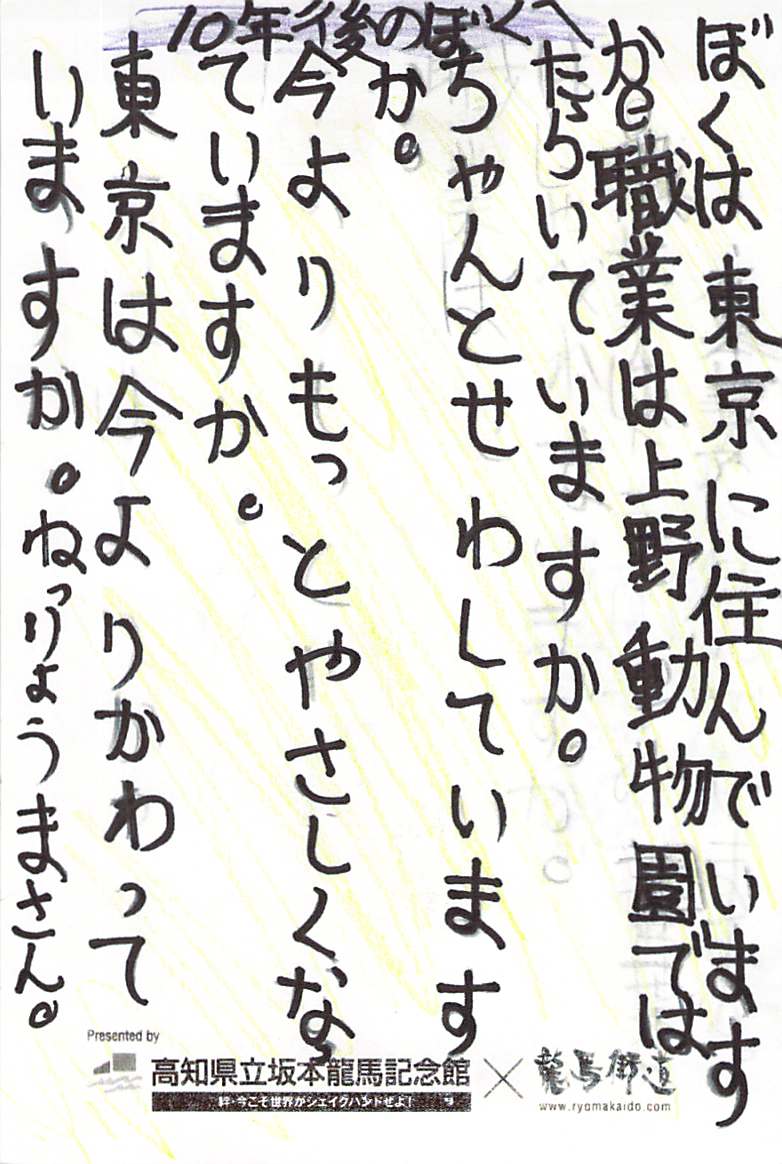 10年後のぼくへ
ぼくは東京に住んでいます
か。職業は上野動物園では
たらいていますか。
ちゃんとせわしています
か。
今よりもっとやさしくなっ
ていますか。
東京は今よりかわって
いますか。ねっりょうまさん。
Presented by
高知県立坂本龍馬記念館 × 龍馬街道
絆・今こそ世界がシェイクハンドぜよ!
www.ryomakaido.com